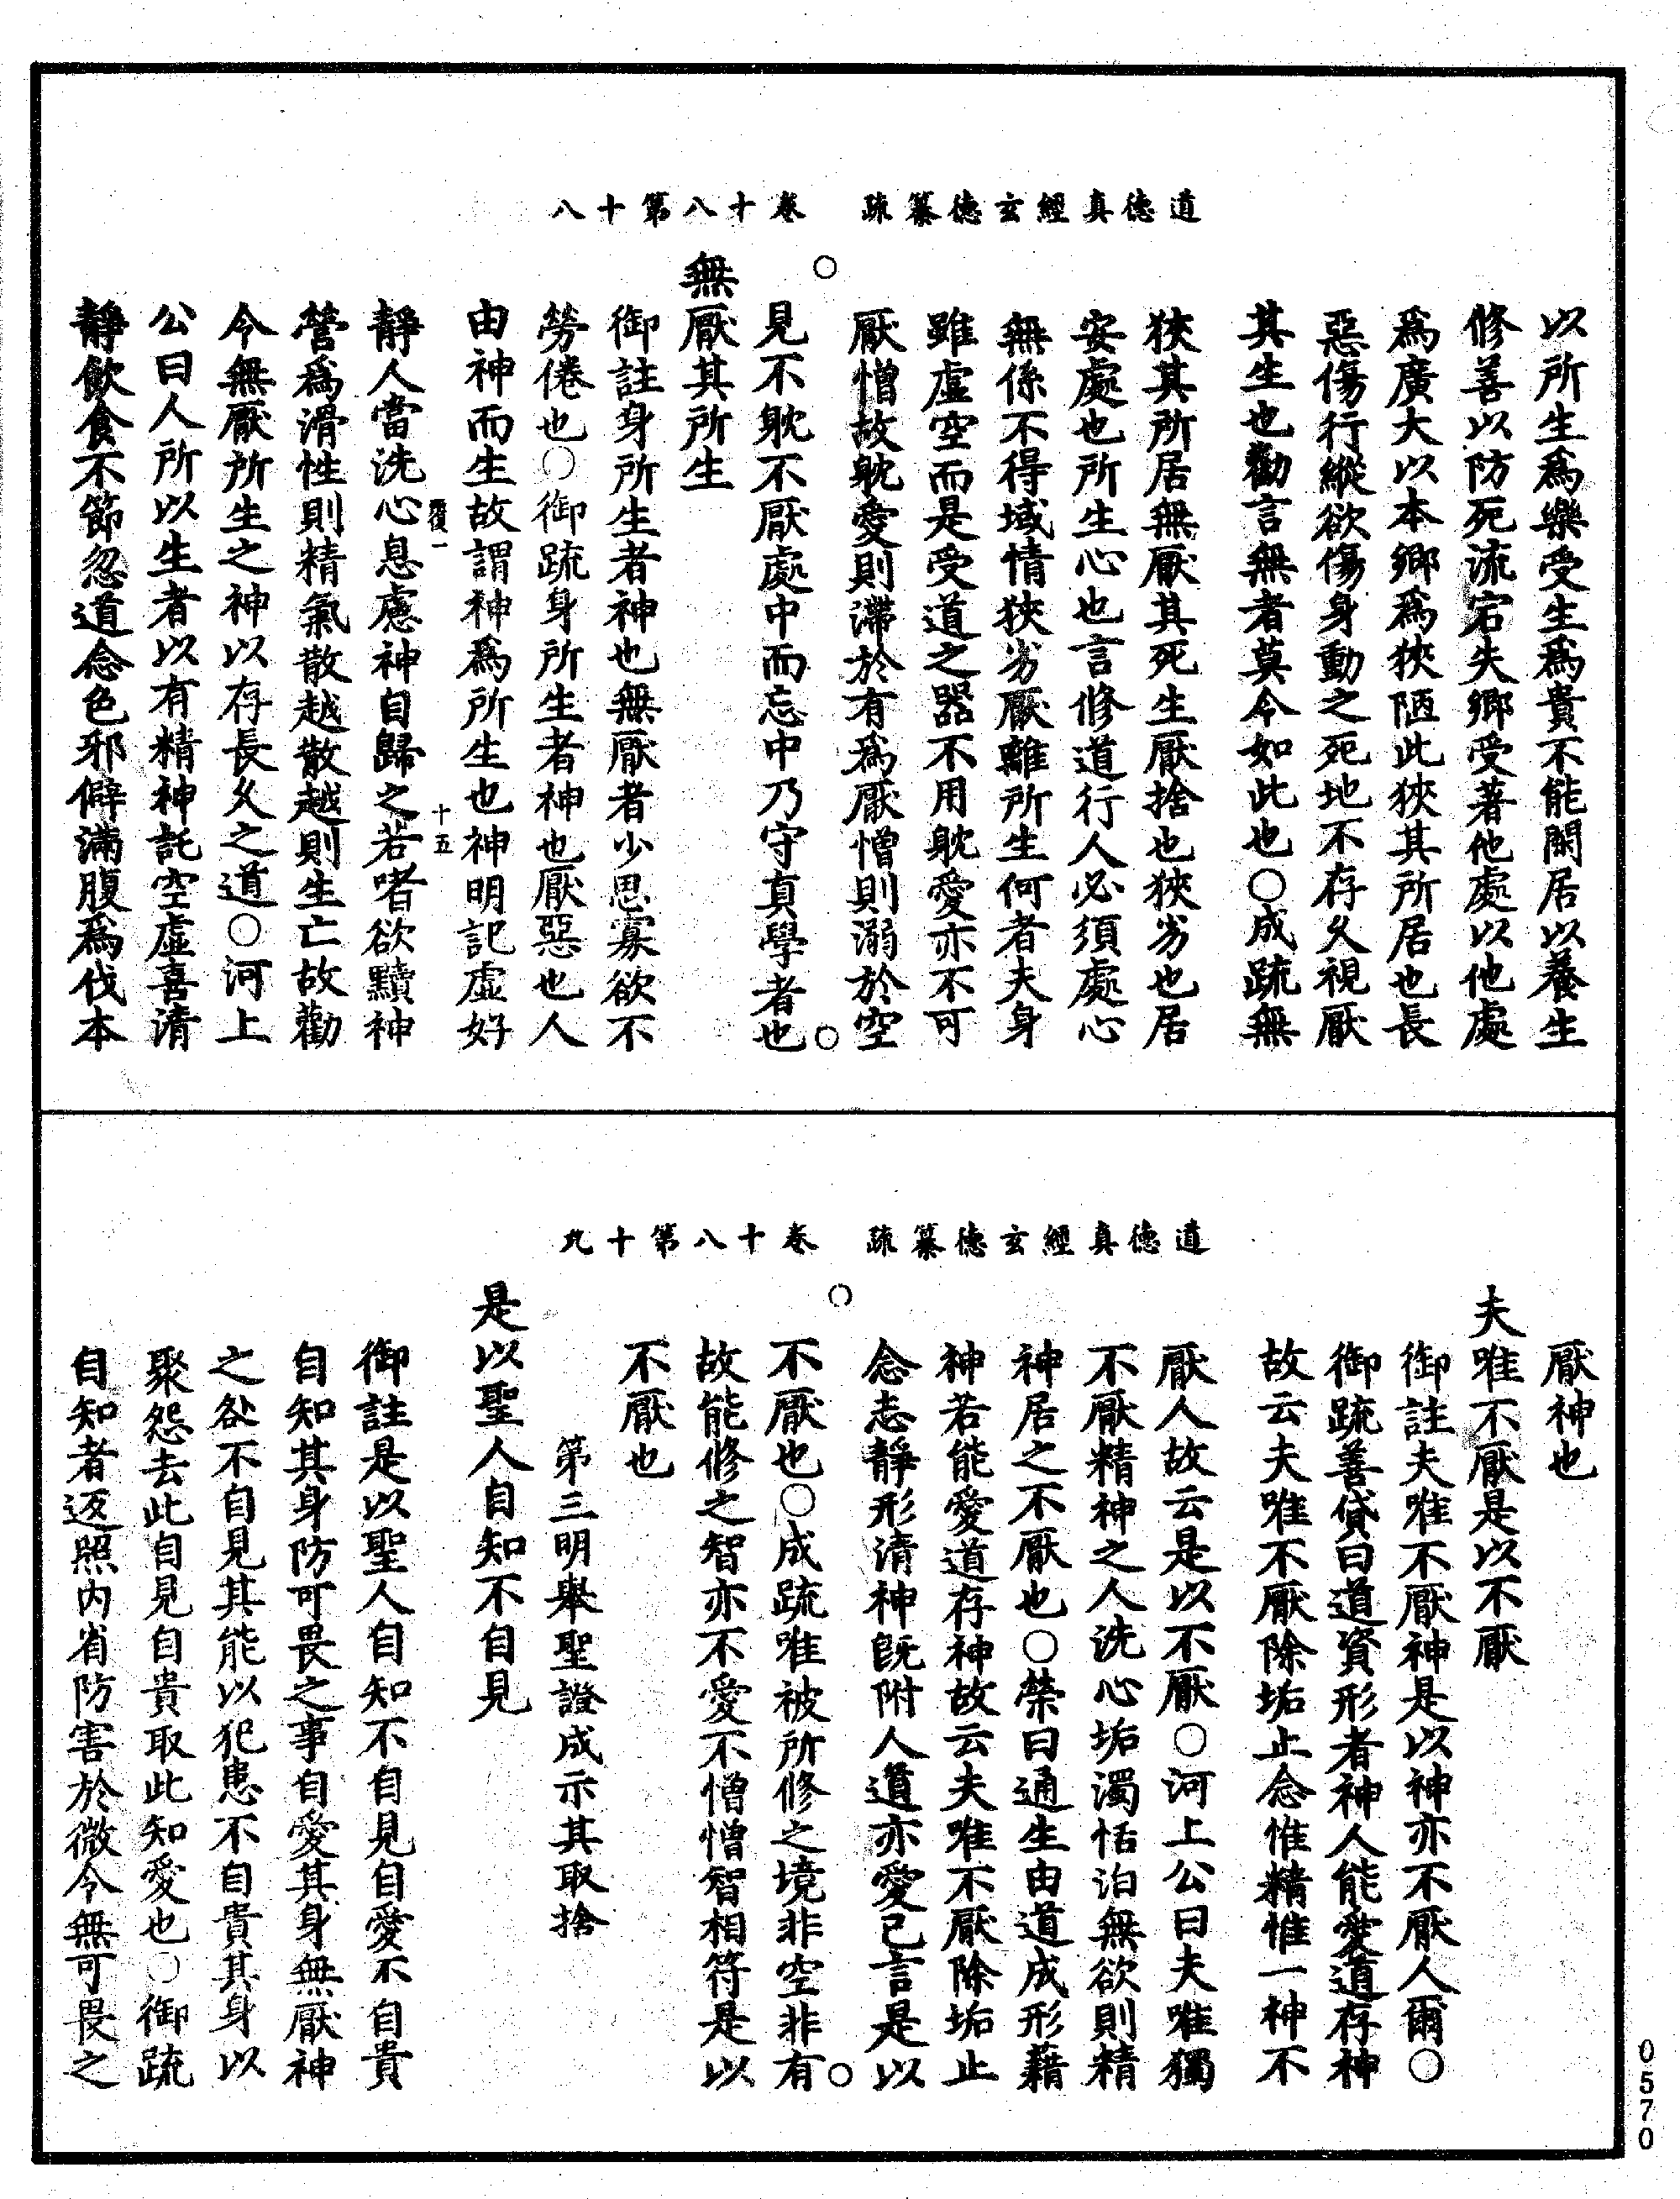 道德真經玄德纂疏　卷十八第十八
以所生爲樂受生爲貴不能閑居以養生
修善以防死流宕失鄉受著他處以他處
爲廣大以本鄉爲狹陋此狹其所居也長
惡傷行縱欲傷身動之死地不存久視厭
其生也勸言無者莫令如此也○成疏無
狹其所居無厭其死生厭捨也狹劣也居
安處也所生心也言修道行人必須處心
無係不得域情狹劣厭離所生何者夫身
雖虛空而是受道之器不用躭愛亦不可
厭憎故躭愛則滯於有爲厭憎則溺於空
見不躭不厭處中而忘中乃守真學者也
無厭其所生
御註身所生者神也無厭者少思寡欲不
勞倦也○御疏身所生者神也厭惡也人
由神而生故謂神爲所生也神明記虛好
靜人當洗心息慮神自歸之若嗜欲黷神
營爲滑性則精氣散越散越則生亡故勸
今無厭所生之神以存長久之道○河上
公曰人所以生者以有精神託空虛喜清
靜飲食不節忽道念色邪僻滿腹爲伐本
十五
道德真經玄德纂疏　卷十八第十九
厭神也
夫唯不厭是以不厭
御註夫唯不厭神是以神亦不厭人爾○
御疏善貸曰道資形者神人能愛道存神
故云夫唯不厭除垢止念惟精惟一神不
厭人故云是以不厭○河上公曰夫唯獨
不厭精神之人洗心垢濁恬泊無欲則精
神居之不厭也○榮曰通生由道成形藉
神若能愛道存神故云夫唯不厭除垢止
念志靜形清神旣附人道亦愛己言是以
不厭也○成疏唯被所修之境非空非有
故能修之智亦不愛不憎憎智相符是以
不厭也
第三明舉聖證成示其取捨
是以聖人自知不自見
御註是以聖人自知不自見自愛不自貴
自知其身防可畏之事自愛其身無厭神
之咎不自見其能以犯患不自貴其身以
聚怨去此自見自貴取此知愛也○御疏
自知者返照內省防害於微令無可畏之
0570